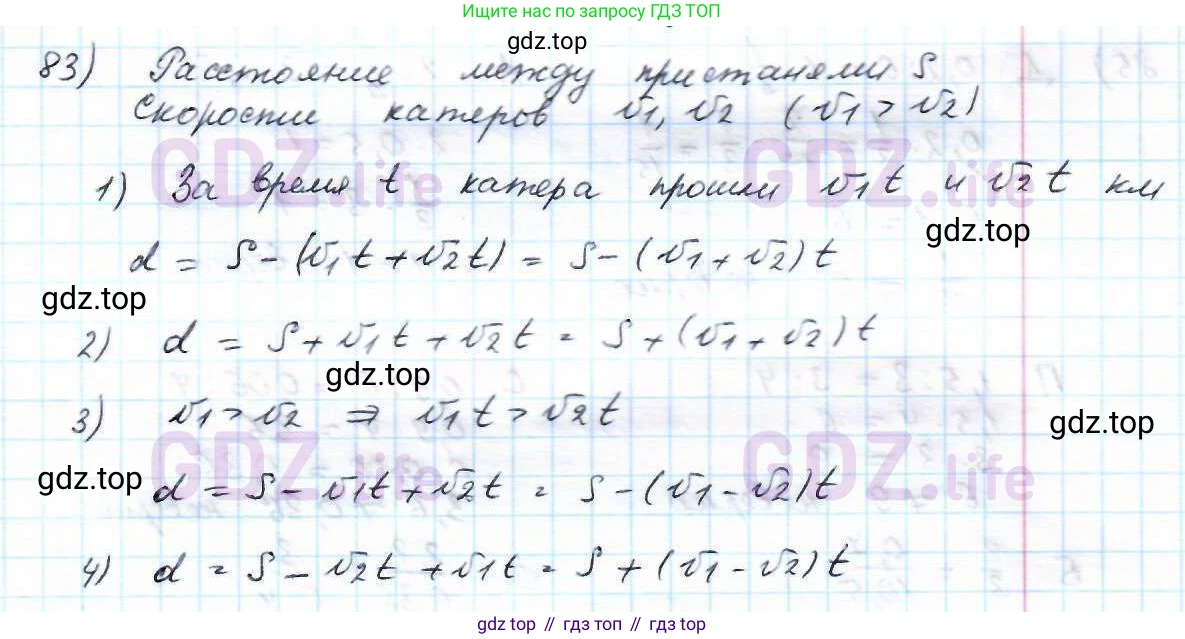 Ищите нас по запросу ГДЗ ТОП
gdz.top
83) Расстояние между пристанями S
Скорости катеров v1, v2 (v1 > v2)
GDZ.life GDZ.life
1) За время t катера прошли v1t и v2t км
gdz.top
d = S - (v1t + v2t) = S - (v1 + v2)t
gdz.top
2) d = S + v1t + v2t = S + (v1 + v2)t
gdz.top
3) v1 > v2 ⇒ v1t > v2t
gdz.top
GDZ.life GDZ.life
gdz.top
d = S - v1t + v2t = S - (v1 - v2)t
4) d = S - v2t + v1t = S + (v1 - v2)t
gdz.top // гдз топ // gdz.top